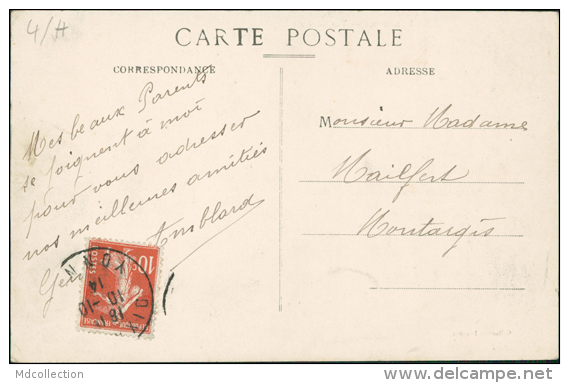 4/H
CARTE POSTALE
CORRESPONDANCE
ADRESSE
Mes beaux Parents
se joignent à moi
pour vous adresser
nos meilleures amitiés
Amblard
Monsieur Madame
Mailfert
Montargis
10
POSTES
YONN
14
10
16
-10
Mdcollection
www.delcampe.net